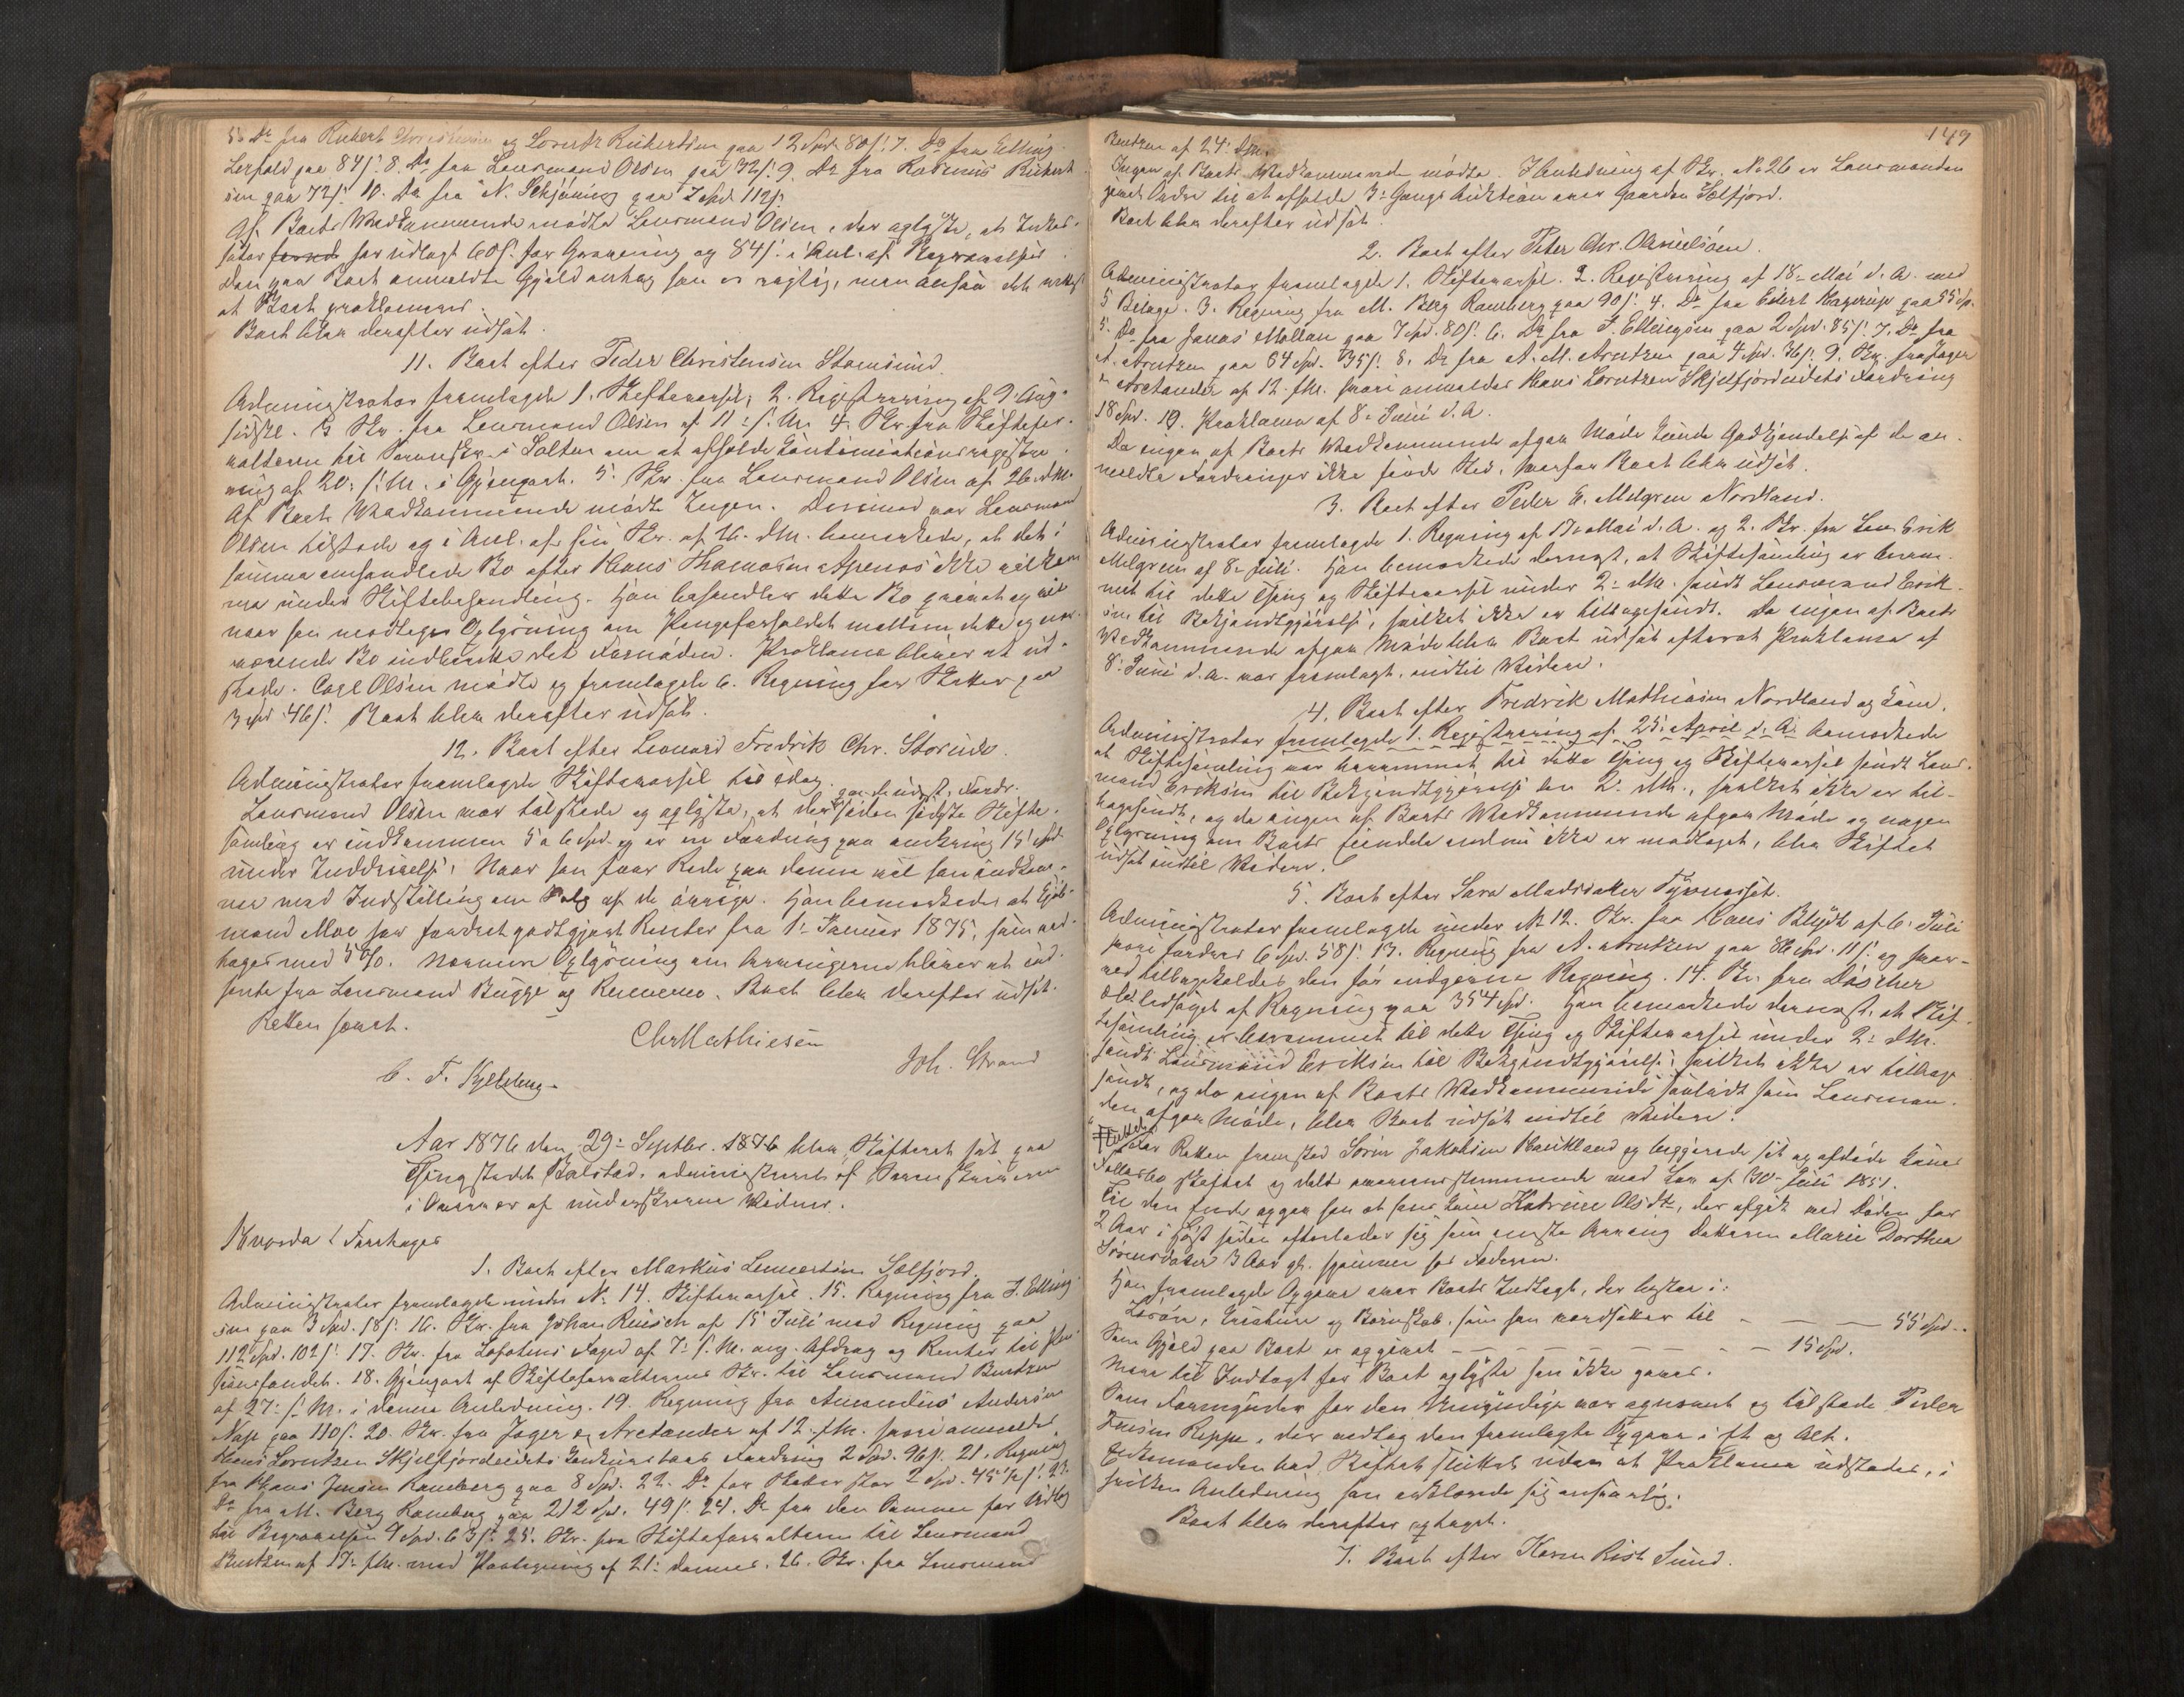 5. Do fra Rickert Christensen og Lorentz Rickertsen paa 12 Spd. 80 s. 7. Do fra Elling
Lerfald paa 84 s. 8. Do fra Lensmand Olsen paa 72 s. 9. Do fra Rasmus Rickert-
sen paa 72 s. 10. Do fra N. Schjöning paa 7 Spd. 112 s.
Af Boets Vedkommende mödte Lensmand Olsen, der oplyste, at Enkes
har udlagt 60 s. for Gravning og 84 s. i Anl. af Begravelsen
den paa Boet anmeldte Gjeld antog han er rigtig, men ansaa det
at Boet proklameres.
Boet blev derefter udsat.
11. Boet efter Peder Christensen Stamsund.
Administrator fremlagde 1. Skiftevarsel; 2. Registrering af 9. Aug.
sidstl. 3. Skr. fra Lensmand Olsen af 11. s. M. 4. Skr. fra Skiftefor-
valteren til Sorenskr. i Salten om at afholde Continuationsregistre-
ring af 20. s. M. i Gjenpart. 5. Skr. fra Lensmand Olsen af 26. d. M.
Af Boets Vedkommende mödte Ingen. Derimod var Lensmand
Olsen tilstede og i Anl. af sin Skr. af 26. d. M. bemærkede, at det i
samme omhandlede Bo efter Hans Thomasen Apenes ikke
under Skiftebehandling. Han behandler dette Bo privat og vil
naar han modtager Oplysning om Pengeforholdet mellem dette og nær-
værende Bo indberette det Fornödne. Proklama bliver at ud-
stede. Carl Olsen mödte og fremlagde 6. Regning for Skatter paa
3 Spd. 46 s. Boet blev derefter udsat.
12. Boet efter Leonard Fredrik Chr. Storeide.
Administrator fremlagde Skiftevarsel til idag.
Lensmand Olsen var tilstede og oplyste, at der siden sidste Skifte-
paa de udest. Fordr.
samling er indkommen 5 a 6 Spd. og er en Fordring paa omkring 15 Spd.
under Inddrivelse. Naar han faar Rede paa denne vil han indkom-
me med Indstilling om Salg af de övrige. Han bemærkede at Kjöb-
mand Moe har fordret godtgjort Renter fra 1. Januar 1875, som ved-
toges med 5 %. Nærmere Oplysning om Arvingerne bliver at ind-
hente fra Lensmand Bugge og Rennemo. Boet blev derefter udsat.
Retten hævet.
Chr Mathiesen
C. F. Kjelsberg
Joh. Strand
Aar 1876 den 29. Septbr. 1876 blev Skifteret sat paa
Thingstedet Balstad, administreret af Sorenskriveren
i Overvær af underskrevne Vidner.
Hvorda / Foretoges
1. Boet efter Markus Lennertsen Selfjord.
Administrator fremlagde under No 14. Skiftevarsel. 15. Regning fra J. Elling-
sen paa 3 Spd. 18 s. 16. Skr. fra Johan Reusch af 15 Juli med Regning paa
112 Spd. 102 s. 17. Skr. fra Lofotens Foged af 7. s. M. ang. Afdrag og Renter til
fondet. 18. Gjenpart af Skifteforvalterens Skr. til Lensmand Bentzen
af 27. s. M. i denne Anledning. 19. Regning fra Amandus Andersen
Nap paa 110 s. 20. Skr. fra Jæger og Arctander af 12. f. M. hvori anmeldes
Hans Lorentzen Skjelfjordeidets Konkursboes Fordring 2 Spd. 96 s. 21. Regning
fra Hans Jensen Ramberg paa 8 Spd. 22. Do for Skatter stor 2 Spd. 45 1/2 s. 23.
Do fra M. Berg Ramberg paa 212 Spd. 49 s. 24. Do fra den Samme for Udlæg
til Begravelsen 4 Spd. 63 s. 25. Skr. fra Skifteforvalteren til Lensmand
Bentzen af 17. f. M. med Paategning af 21. dennes. 26. Skr. fra Lensmand
149
Bentzen af 24. d. M.
Ingen af Boets Vedkommende mödte. I Anledning af Skr. No 26 er Lensmanden
givet Ordre til at afholde 3. Gangs Auktion over Gaarden Selfjord.
Boet blev derefter udsat.
2. Boet efter Peter Chr. Danielsen.
Administrator fremlagde 1. Skiftevarsel. 2. Registrering af 18. Mai d. A. med
5 Bilage. 3. Regning fra M. Berg Ramberg paa 90 s. 4. Do fra Edert Hagerup paa 55 Sp.
5. Do fra Jonas Möllan paa 7 Spd. 80 s. 6. Do fra J. Ellingsen paa 2 Spd. 85 s. 7. Do fra
A. Arntzen paa 64 Spd. 35 s. 8. Do fra A. M. Arntzen paa 4 Spd. 36 s. 9. Skr. fra Jæger
& Arctander af 12. f. M. hvori anmeldes Hans Lorentzen Skjelfjordeidets Fordring
18 Spd. 10. Proklama af 8. Juni d. A.
Da ingen af Boets Vedkommende afgav Möde kunde Godkjendelse af de an-
meldte Fordringer ikke finde Sted, hvorfor Boet blev udsat.
3. Boet efter Peder E. Melgren Nordland.
Administrator fremlagde 1. Regning af 17. Mai d. A. og 2. Skr. fra Lars Erik
Melgren af 8. Juli. Han bemærkede dernæst, at Skiftesamling er beram-
met til dette Thing og Skiftevarsel under 2. d. M. sendt Lensmand Erik-
sen til Bekjendtgjörelse, hvilket ikke er tilbagesendt. Da ingen af Boets
Vedkommende afgav Möde blev Boet udsat efterat Proklama af
8. Juni d. A. var fremlagt, indtil Videre.
4. Boet efter Fredrik Mathiasen Nordland og Kone.
Administrator fremlagde 1. Registrering af 25. April d. A. bemærkede
at Skiftesamling var berammet til dette Thing og Skiftevarsel sendt Lens-
mand Eriksen til Bekjendtgjörelse den 2. d. M., hvilket ikke er til-
bagesendt, og da ingen af Boets Vedkommende afgav Möde og nogen
Oplysning om Boets Eiendele endnu ikke er modtaget, blev Skiftet
udsat indtil Videre.
5. Boet efter Sara Madsdatter Tyvnæsset.
Administrator fremlagde under No 12. Skr. fra Hans Blydt af 6. Juli
hvori fordres 6 Spd. 58 s. 13. Regning fra A. Arntzen paa 86 Spd. 11 s. og hvor-
ved tilbagekaldes den för indgivne Regning. 14. Skr. fra Döscher
ledsaget af Regning paa 354 Spd. Han bemærkede dernæst, at Skif-
tesamling er berammet til dette Thing og Skiftevarsel under 2. d. M.
sendt Lensmand Eriksen til Bekjendtgjörelse, hvilket ikke er tilbage-
sendt, og da ingen af Boets Vedkommende saalidt som Lensman-
den afgav Möde, blev Boet udsat indtil Videre.
Sluttet
For Retten fremstod Sören Jakobsen Haukland og begjærede sit og afdöde Kones
Fællesbo skiftet og delt overensstemmende med Lov af 30. Juli 1851.
Til den Ende opgav han at hans Kone Katrine Olsdtr, der afgik ved Döden for
2 Aar i Höst siden efterlader sig som eneste Arving Datteren Marie Dorthea
Sörensdatter 3 Aar gl. hjemme hos Faderen.
Han fremlagde Opgave over Boets Indtægt, der bestaar i:
Lösöre, Kreature og Boskab, som han værdsætter til – – – 55 Spd.
Som Gjeld paa Boet er opgivet – – – – – – 15 Spd.
Mere til Indtægt for Boet oplyste han ikke haves.
Som Formynder for den Umyndige var opnævnt og tilstede Peder
Jensen Reppe, der vedtog den fremlagte Opgave i Et og Alt.
Enkemanden bad Skiftet sluttet uden at Proklama udstedes, i
hvilken Anledning han erklærede sig ansvarlig.
Boet blev derefter optaget.
7. Boet efter Karen Rist Sund.